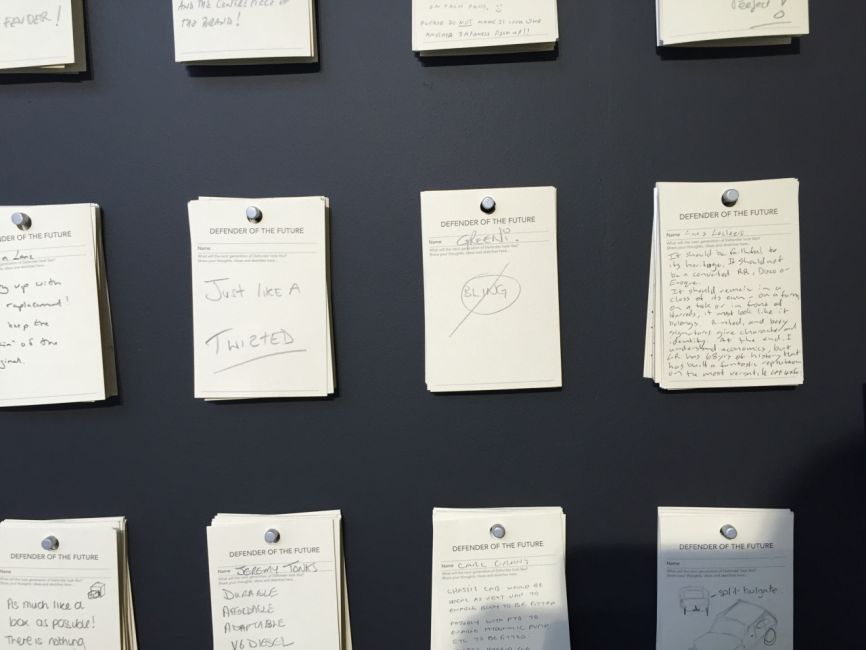 FENDER!
AND THE CENTREPIECE OF
THE BRAND!
ON EACH
PLEASE DO NOT MAKE IT LOOK LIKE
ANOTHER JAPANESE
Perfect
DEFENDER OF THE FUTURE
y up with
replacement!
keep the
of the
DEFENDER OF THE FUTURE
Name
What will the next generation of Defender look like?
Share your thoughts, ideas and sketches here...
JUST LIKE A
TWISTED
DEFENDER OF THE FUTURE
Name GREEN!
What will the next generation of Defender look like?
Share your thoughts, ideas and sketches here...
BLING
DEFENDER OF THE FUTURE
Name
What will the next generation of Defender look like?
Share your thoughts, ideas and sketches here...
It should be faithful to
its heritage. It should not
be a converted RR, Disco or
Evoque.
It should remain in a
class of its own - on a farm,
on a tak or in front of
Harrods, it must look like it
belongs. and body
signatures give character and
identity. At the end, I
understand economics, but
LR has 68yrs of history that
has built a fantastic reputation
on the most versatile
DEFENDER OF THE FUTURE
Name
What will the next generation of Defender look like?
Share your thoughts, ideas and sketches here...
As much like a
box as possible!
There is nothing
DEFENDER OF THE FUTURE
Name JEREMY TONKS
What will the next generation of Defender look like?
Share your thoughts, ideas and sketches here...
DURABLE
AFFORDABLE
ADAPTABLE
V6 DIESEL
DEFENDER OF THE FUTURE
Name CARL
What will the next generation of Defender look like?
Share your thoughts, ideas and sketches here...
CHASSIS CAB WOULD BE
IDEAL AS NEXT UNIT TO
ENABLE BODY TO BE FITTED
POSSIBLY WITH PTO TO
ENABLE HYDRAULIC PUMP
ETC TO BE FITTED
DEFENDER OF THE FUTURE
Name
What will the next generation of Defender look like?
Share your thoughts, ideas and sketches here...
split tailgate